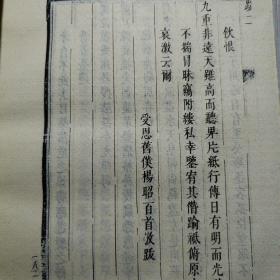 飲恨
九重非遠天雖高而聽卑片紙行傳日有明而光
不揣冒昧竊附縷私幸鑒宥其僭踰祗俯原
哀激云爾
受恩舊僕楊昭百首泼跋